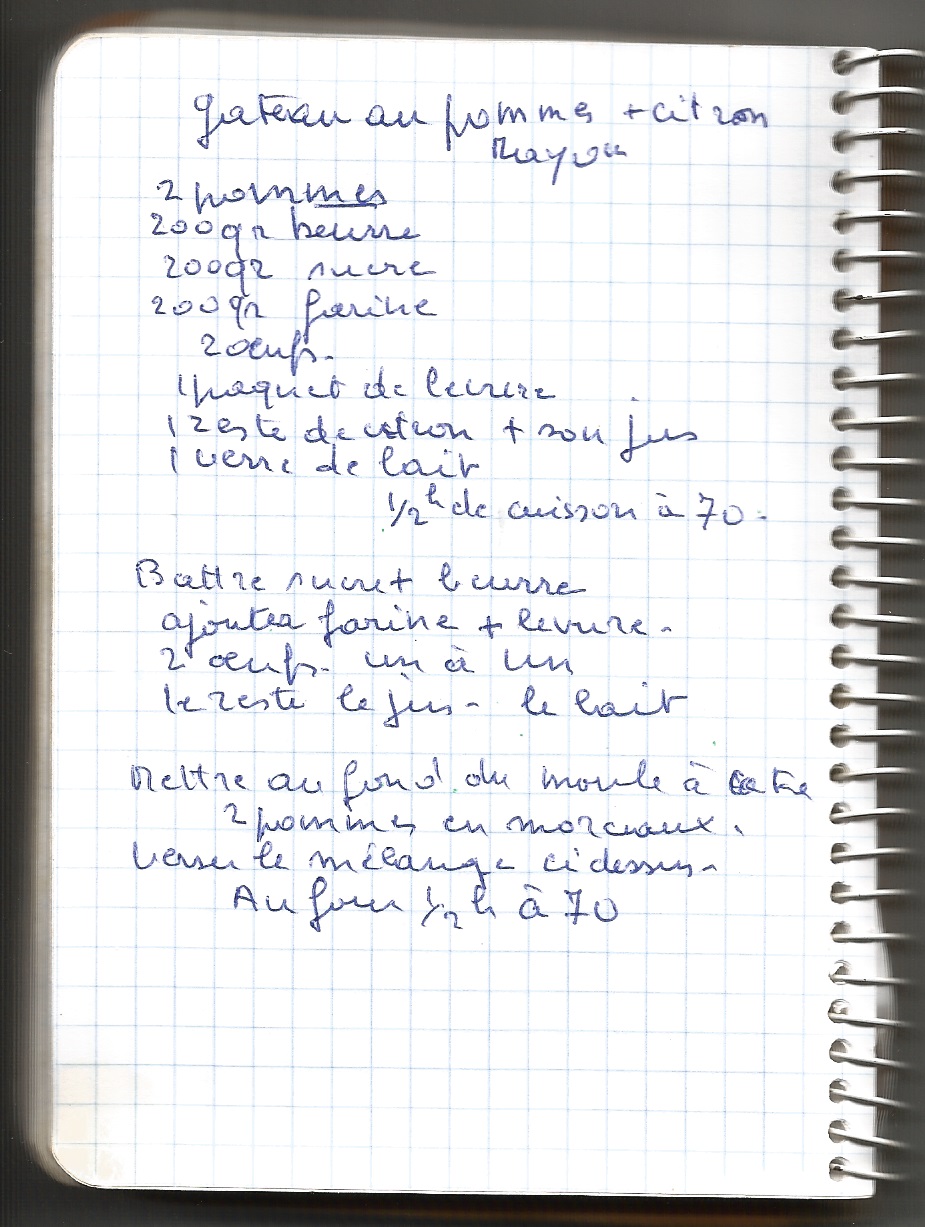 gateau au pommes + citron
Mayou
2 pommes
200gr beurre
200gr sucre
200gr farine
2 œufs.
1 paquet de levure
1 zeste de citron + son jus
1 verre de lait
1/2 h de cuisson à 70.
Battre sucre + beurre
ajouter farine + levure.
2 œufs. un à un
le zeste le jus - le lait
Mettre au fond du moule à
2 pommes en morceaux.
Verser le mélange ci dessus.
Au four 1/2 h à 70